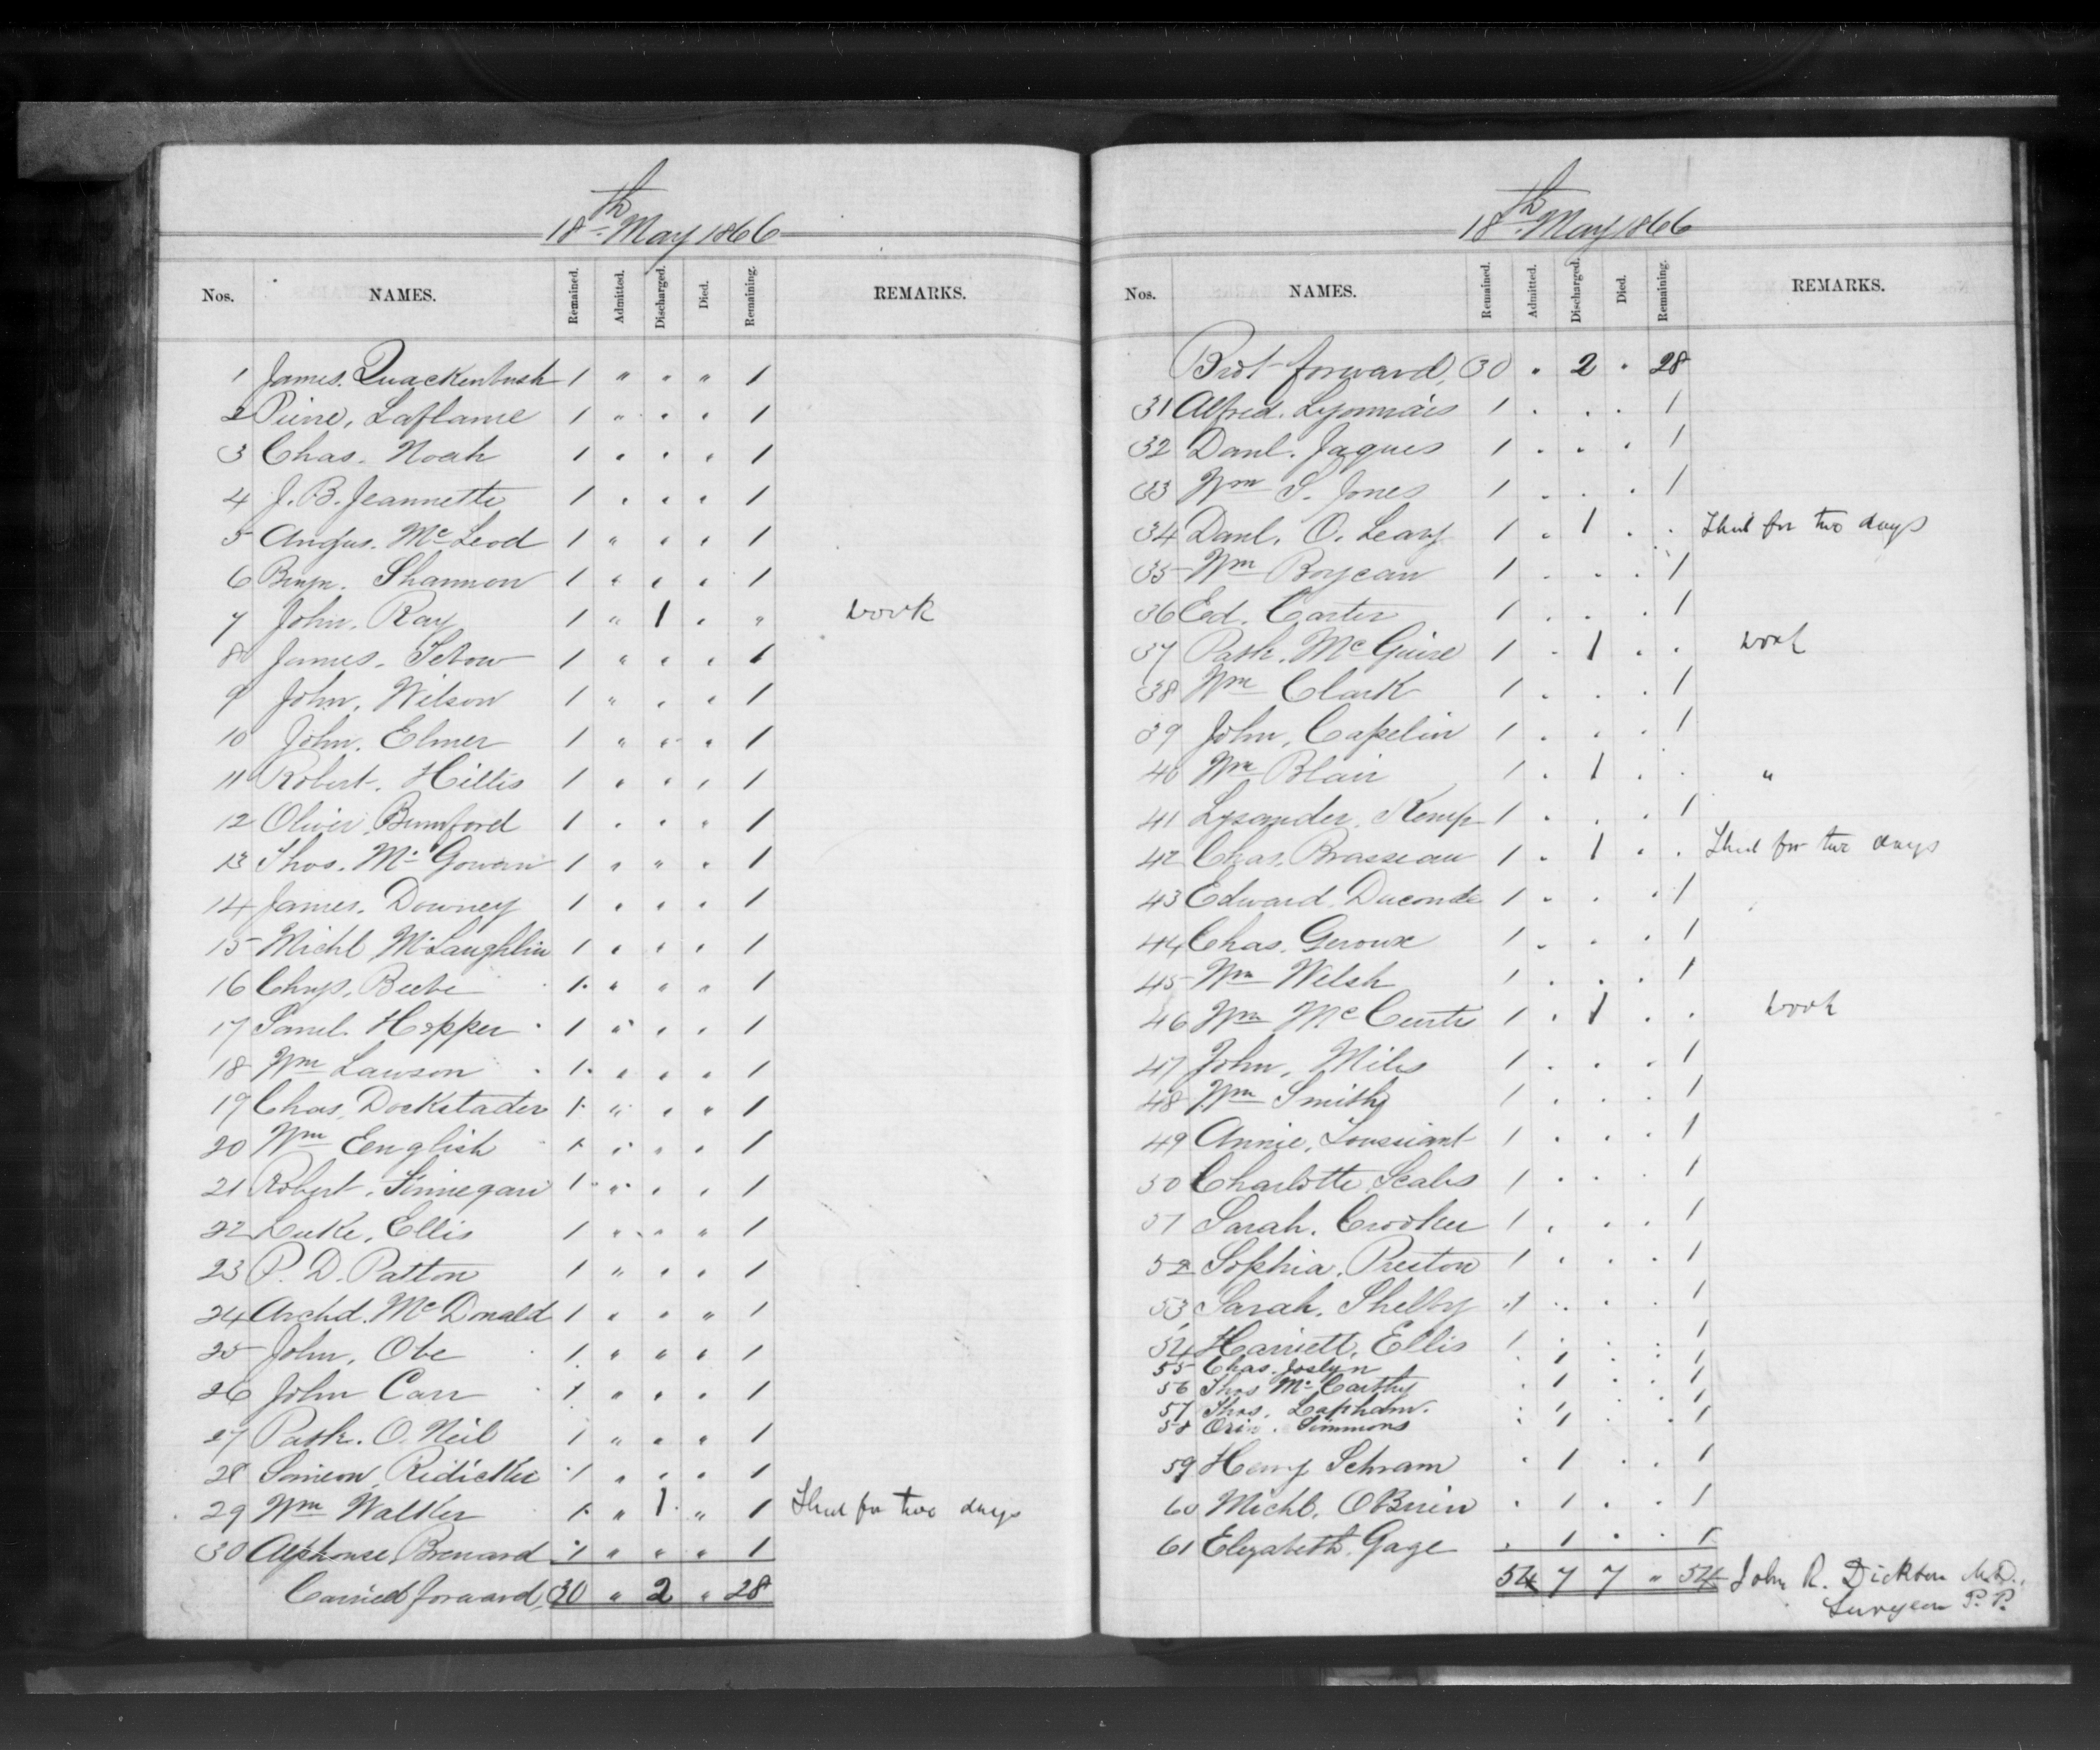 18th May 1866
Nos. NAMES. Remained. Admitted. Discharged. Died. Remaining. REMARKS.
1 James. Quackenbush 1 " . " 1
2 Pierre, Laflame 1 " . . 1
3 Chas. Noah 1 . . . 1
4 J. B. Jeannette 1 . . . 1
5 Angus. Mc Leod 1 " . . 1
6 Benjn. Shannon 1 " . . 1
7 John. Ray 1 " 1 . " work
8 James. 1 " . . 1
9 John. Wilson 1 " . . 1
10 John. Elmer 1 " " . 1
11 Robert. Hillis 1 . . . 1
12 Oliver. Bumford 1 . . " 1
13 Thos. Mc Gowan 1 " " . 1
14 James. Downey 1 . . . 1
15 Michl McLaughlin 1 . . . 1
16 Chrys. Beebe 1 . " " 1
17 Saml. Hopper 1 " . . 1
18 Wm Lawson 1 . . . 1
19 Chas. Dockstader 1 " . " 1
20 Wm English 1 . " . 1
21 Robert. Finnegan 1 " . . 1
22 Luke. Ellis 1 " " " 1
23 P. D. Patton 1 " . . 1
24 Archd. Mc Donald 1 . . " 1
25 John. Obe 1 " " . 1
26 John Carr 1 " . . 1
27 Patk. O. Neil 1 " . " 1
28 Simeon Ridicker 1 " . . 1
29 Wm Walker 1 " 1 " 1 Shed for two days
30 Alphonse, Brenard 1 " " " 1
Carried forward, 30 " 2 " 28
18th May 1866
Nos. NAMES. Remained. Admitted. Discharged. Died. Remaining. REMARKS.
Brot forward, 30 . 2 . 28
31 Alfred. Lyonnais 1 . . . 1
32 Danl. Jaques 1 . . . 1
33 Wm S. Jones 1 . . . 1
34 Danl. O. Leary 1 . 1 . . Shed for two days
35 Wm Boyeau 1 . . . 1
36 Ed. Carter 1 . . . 1
37 Patk. Mc Guire 1 . 1 . . work
38 Wm Clark 1 . . . 1
39 John. Capelin 1 . . . 1
40 Wm Blair 1 . 1 . . "
41 Lysander. Kemp 1 . . . 1
42 Chas. Brasseau 1 . 1 . . Shed for two days
43 Edward. Duconde 1 . . . 1
44 Chas. Geroux 1 . . . 1
45 Wm Welsh 1 . . . 1
46 Wm Mc Curtis 1 . 1 . . work
47 John. Miles 1 . . . 1
48 Wm Smith 1 . . . 1
49 Annie. Toussiant 1 . . . 1
50 Charlotte Scales 1 . . . 1
51 Sarah. Crooker 1 . . . 1
52 Sophia. Preston 1 . . . 1
53 Sarah. Shelby 1 . . . 1
54 Harriett. Ellis 1 . . . 1
55 Chas. Joslyn . 1 . . 1
56 Thos Mc Carthy . 1 . . 1
57 Thos. Lapham. . 1 . . 1
58 Orin. Simmons . 1 . . 1
59 Henry Schram . 1 . . 1
60 Michl. OBrien . 1 . . 1
61 Elizabeth. Gage . 1 . . 1
54 7 7 " 54 John R. Dickson M.D.,
Surgeon P. P.